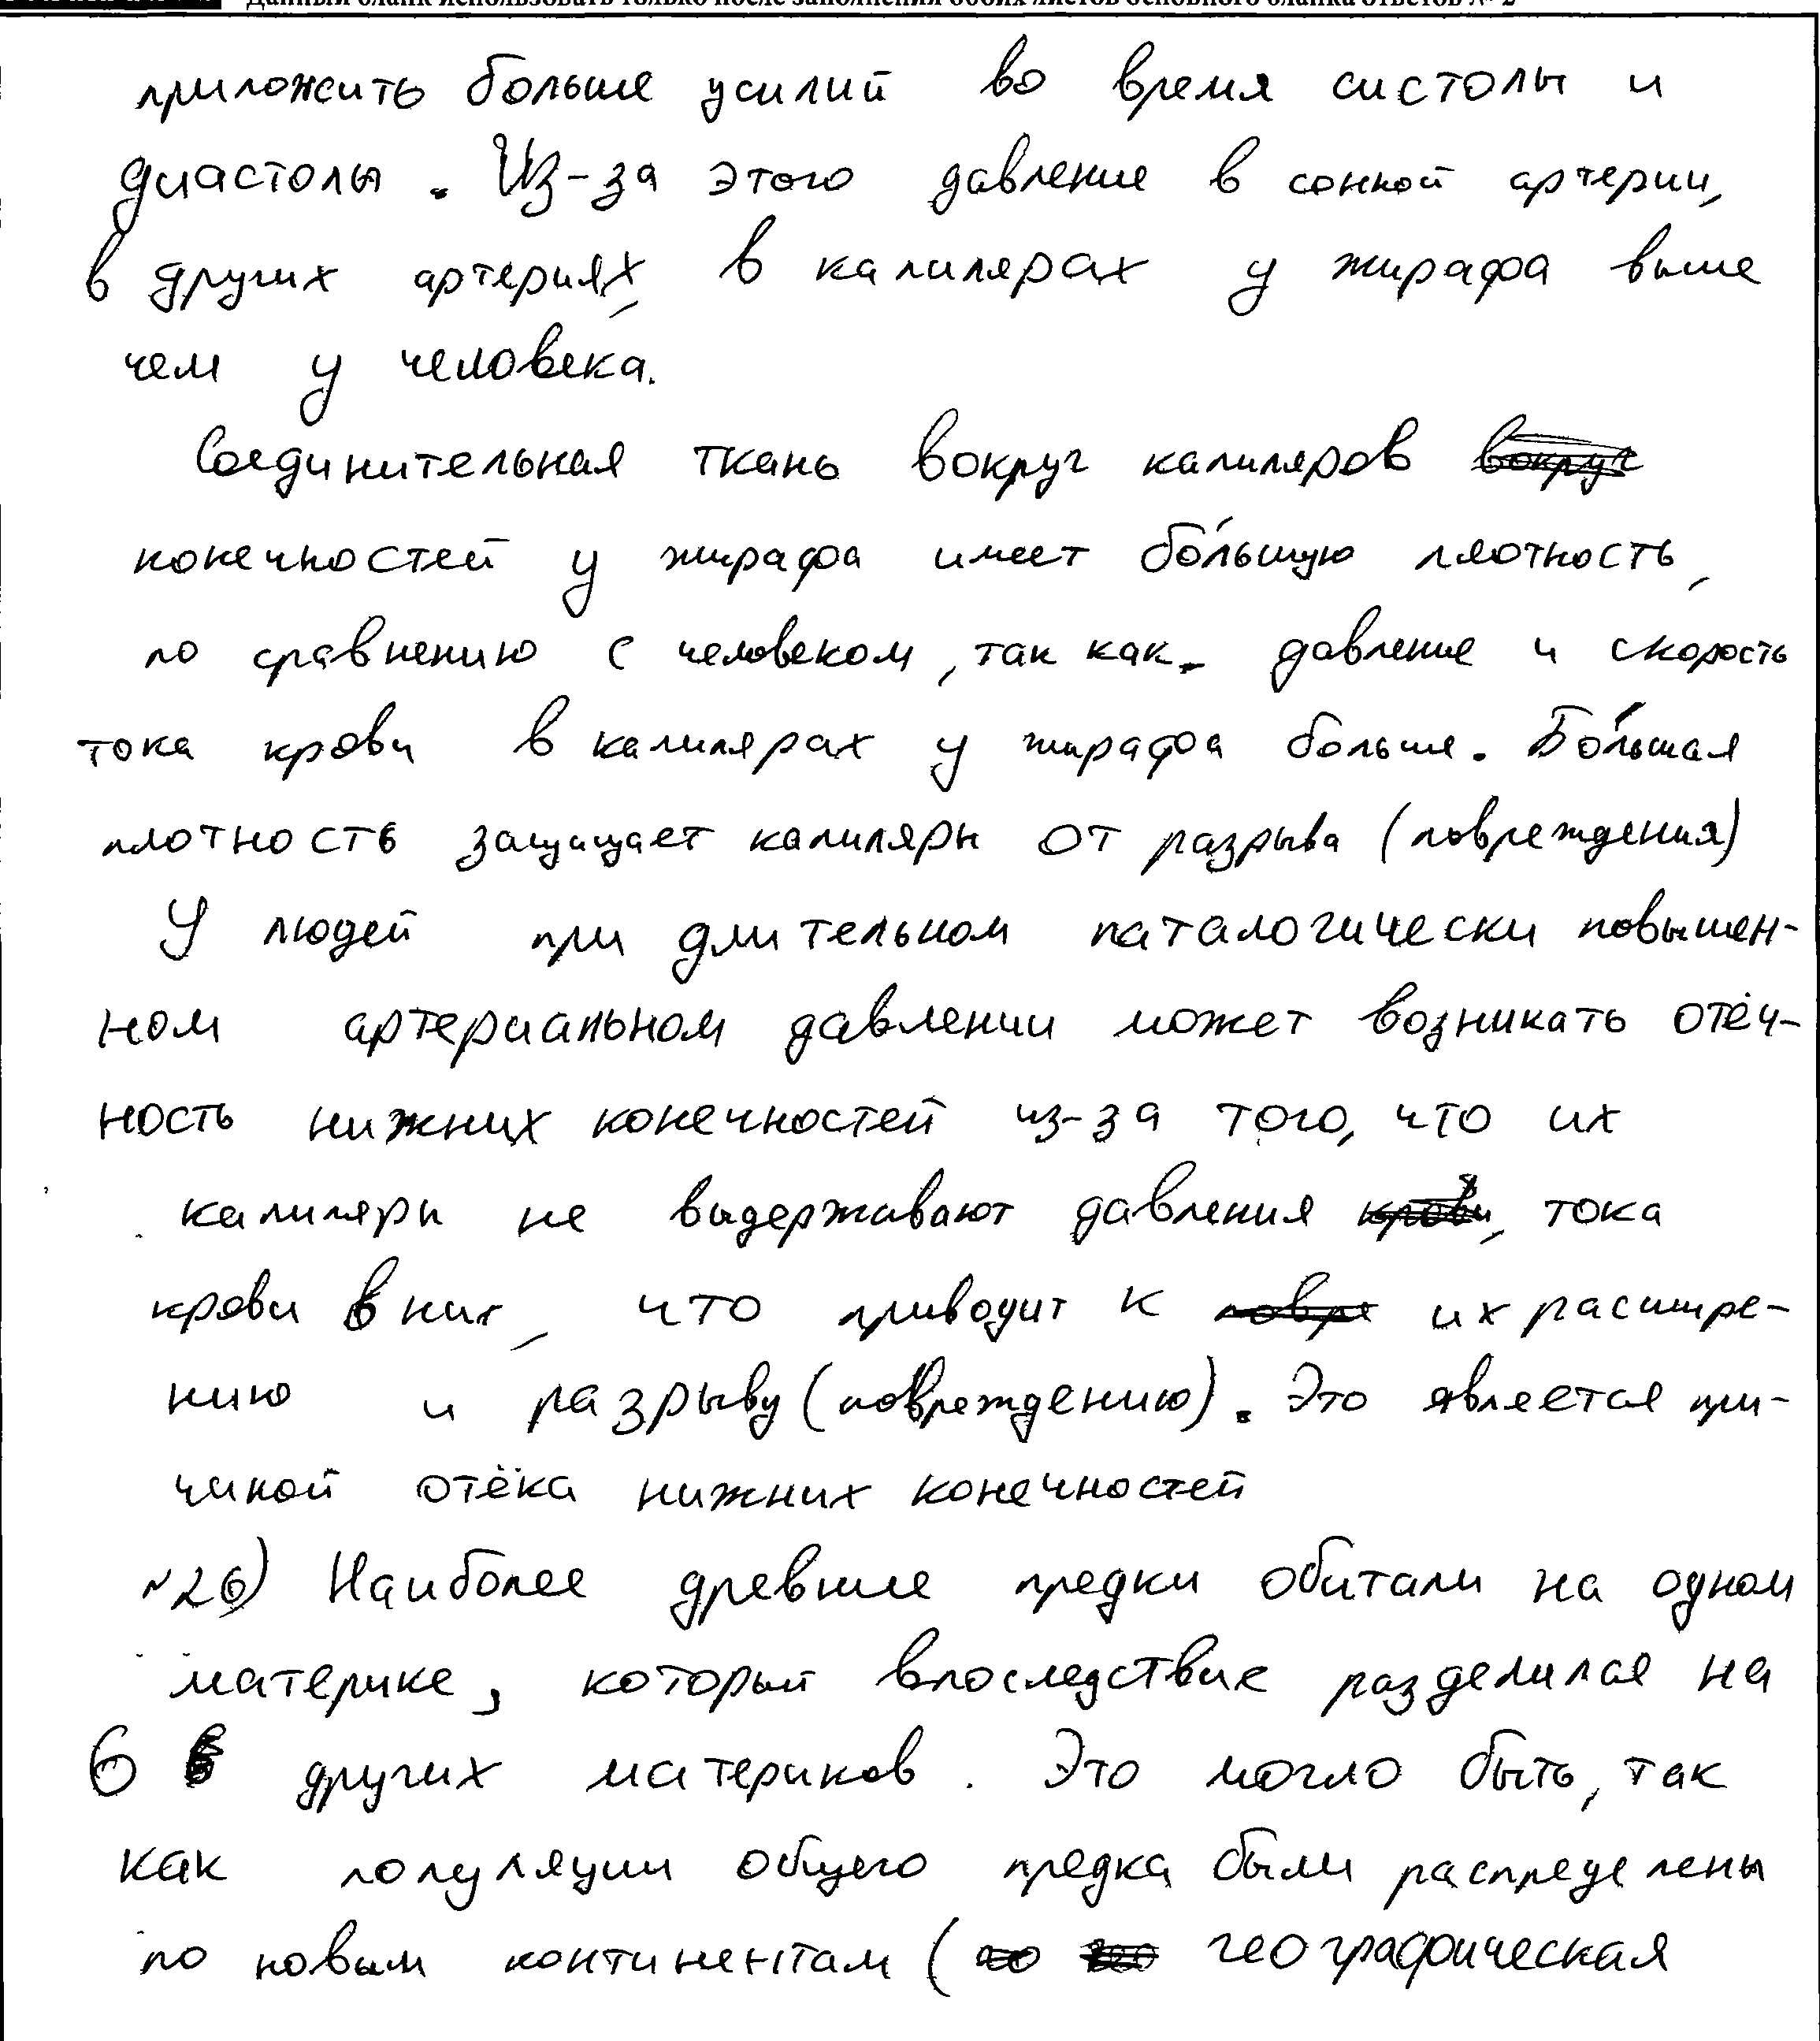 Данный бланк использовать только после заполнения обоих листов основного бланка ответов № 2
приложить больше усилий во время систолы и
диастолы. Из-за этого давление в сонной артерии,
в других артериях, в капилярах у жирафа выше
чем у человека.
Соединительная ткань вокруг капиляров вокруг
конечностей у жирафа имеет бо́льшую плотность,
по сравнению с человеком, так как. давление и скорость
тока крови в капилярах у жирафа больше. Бо́льшая
плотность защищает капиляры от разрыва (повреждения)
У людей при длительном паталогически повышен-
ном артериальном давлении может возникать отёч-
ность нижних конечностей из-за того, что их
капиляры не выдерживают давления крови, тока
крови в них, что приводит к повре их расшире-
нию и разрыву (повреждению). Это является при-
чиной отёка нижних конечностей
№26) Наиболее древние предки обитали на одном
материке, который впоследствие разделился на
6 других материков. Это могло быть, так
как популяции общего предка были распределены
по новым континентам (го гео географическая